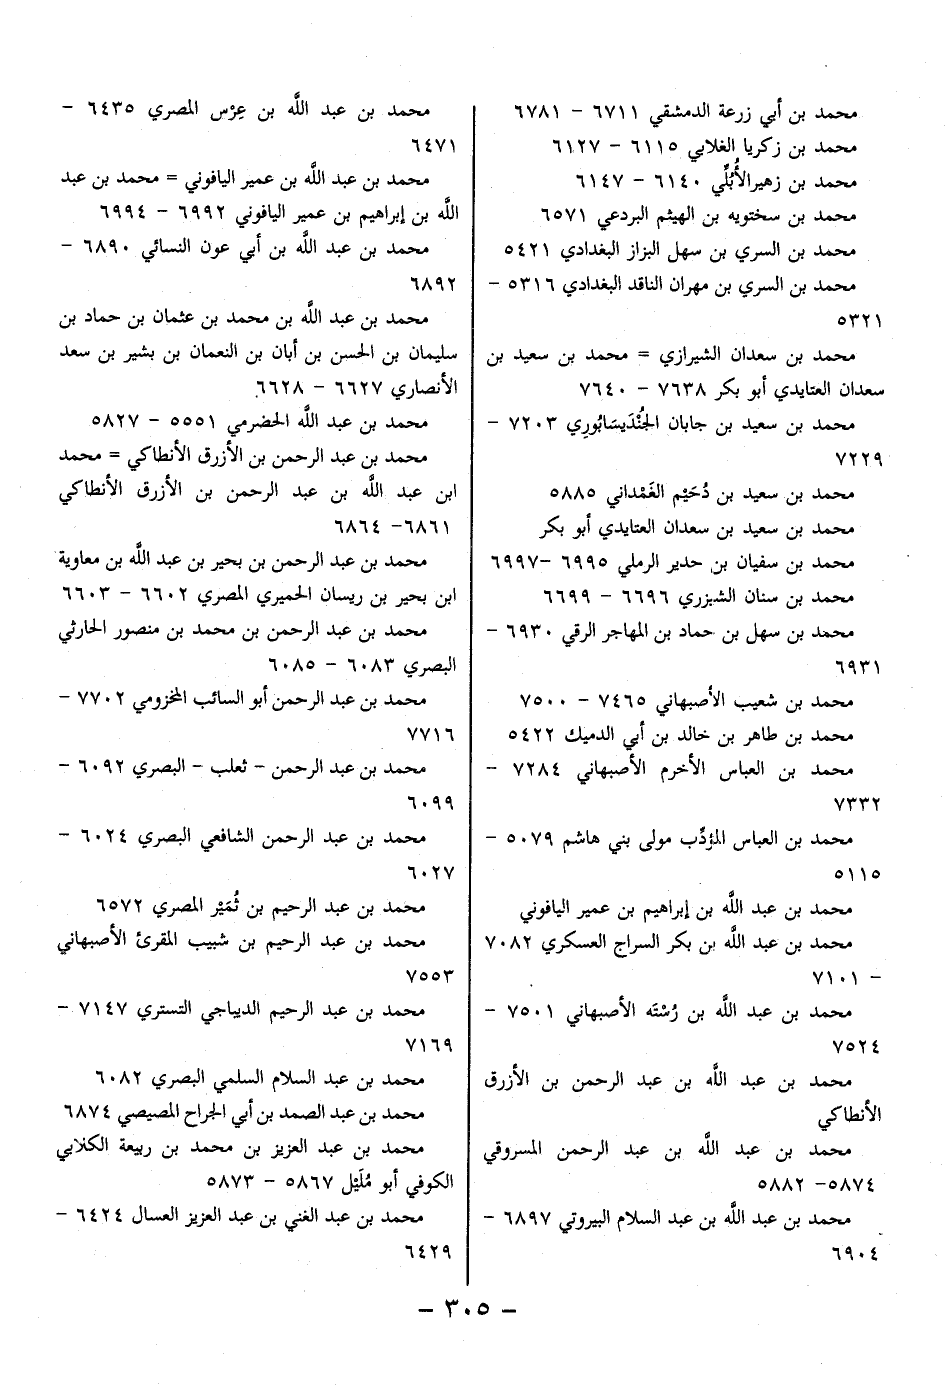 محمد بن أبي زرعة الدمشقي ٦٧١١ – ٦٧٨١
محمد بن زكريا الغلابي ٦١١٥ – ٦١٢٧
محمد بن زهير الأُبُلِّي ٦١٤٠ – ٦١٤٧
محمد بن سختويه بن الهيثم البردعي ٦٥٧١
محمد بن السري بن سهل البزاز البغدادي ٥٤٢١
محمد بن السري بن مهران الناقد البغدادي ٥٣١٦ –
٥٣٢١
محمد بن سعدان الشيرازي = محمد بن سعيد بن
سعدان العتايدي أبو بكر ٧٦٣٨ – ٧٦٤٠
محمد بن سعيد بن جابان الجُنْدَيسَابُورِي ٧٢٠٣ –
٧٢٢٩
محمد بن سعيد بن دُحَيْم الغَمْداني ٥٨٨٥
محمد بن سعيد بن سعدان العتايدي أبو بكر
محمد بن سفيان بن حدير الرملي ٦٩٩٥ –٦٩٩٧
محمد بن سنان الشيزري ٦٦٩٦ – ٦٦٩٩
محمد بن سهل بن حماد بن المهاجر الرقي ٦٩٣٠ –
٦٩٣١
محمد بن شعيب الأصبهاني ٧٤٦٥ – ٧٥٠٠
محمد بن طاهر بن خالد بن أبي الدميك ٥٤٢٢
محمد بن العباس الأخرم الأصبهاني ٧٢٨٤ –
٧٣٣٢
محمد بن العباس المؤدِّب مولى بني هاشم ٥٠٧٩ –
٥١١٥
محمد بن عبد اللَّه بن إبراهيم بن عمير اليافوني
محمد بن عبد اللَّه بن بكر السراج العسكري ٧٠٨٢
– ٧١٠١
محمد بن عبد اللَّه بن رُسْتَه الأصبهاني ٧٥٠١ –
٧٥٢٤
محمد بن عبد اللَّه بن عبد الرحمن بن الأزرق
الأنطاكي
محمد بن عبد اللَّه بن عبد الرحمن المسروقي
٥٨٧٤– ٥٨٨٢
محمد بن عبد اللَّه بن عبد السلام البيروتي ٦٨٩٧ –
٦٩٠٤
محمد بن عبد اللَّه بن عِرْس المصري ٦٤٣٥ –
٦٤٧١
محمد بن عبد اللَّه بن عمير اليافوني = محمد بن عبد
اللَّه بن إبراهيم بن عمير اليافوني ٦٩٩٢ – ٦٩٩٤
محمد بن عبد اللَّه بن أبي عون النسائي ٦٨٩٠ –
٦٨٩٢
محمد بن عبد اللَّه بن محمد بن عثمان بن حماد بن
سليمان بن الحسن بن أبان بن النعمان بن بشير بن سعد
الأنصاري ٦٦٢٧ – ٦٦٢٨
محمد بن عبد اللَّه الحضرمي ٥٥٥١ – ٥٨٢٧
محمد بن عبد الرحمن بن الأزرق الأنطاكي = محمد
ابن عبد اللَّه بن عبد الرحمن بن الأزرق الأنطاكي
٦٨٦١– ٦٨٦٤
محمد بن عبد الرحمن بن بحير بن عبد اللَّه بن معاوية
ابن بحير بن ريسان الحميري المصري ٦٦٠٢ – ٦٦٠٣
محمد بن عبد الرحمن بن محمد بن منصور الحارثي
البصري ٦٠٨٣ – ٦٠٨٥
محمد بن عبد الرحمن أبو السائب المخزومي ٧٧٠٢ –
٧٧١٦
محمد بن عبد الرحمن – ثعلب – البصري ٦٠٩٢ –
٦٠٩٩
محمد بن عبد الرحمن الشافعي البصري ٦٠٢٤ –
٦٠٢٧
محمد بن عبد الرحيم بن ثُمَيْر المصري ٦٥٧٢
محمد بن عبد الرحيم بن شبيب المقرئ الأصبهاني
٧٥٥٣
محمد بن عبد الرحيم الديباجي التستري ٧١٤٧ –
٧١٦٩
محمد بن عبد السلام السلمي البصري ٦٠٨٢
محمد بن عبد الصمد بن أبي الجراح المصيصي ٦٨٧٤
محمد بن عبد العزيز بن محمد بن ربيعة الكلابي
الكوفي أبو مُلَيْل ٥٨٦٧ – ٥٨٧٣
محمد بن عبد الغني بن عبد العزيز العسال ٦٤٢٤ –
٦٤٢٩
– ٣٠٥ –